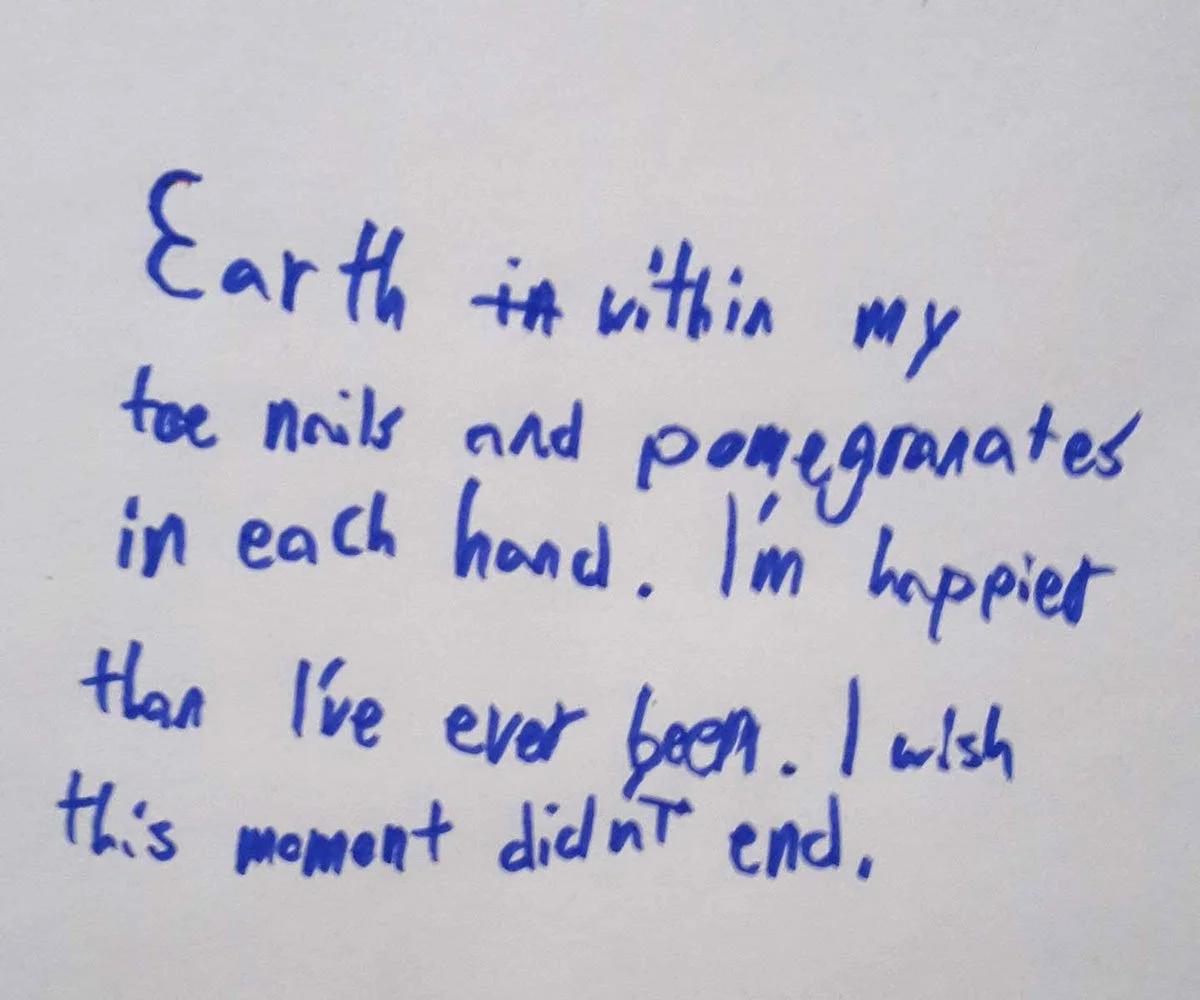 Earth in within my
toe nails and pomegranates
in each hand. I'm happier
than I've ever been. I wish
this moment didn't end.